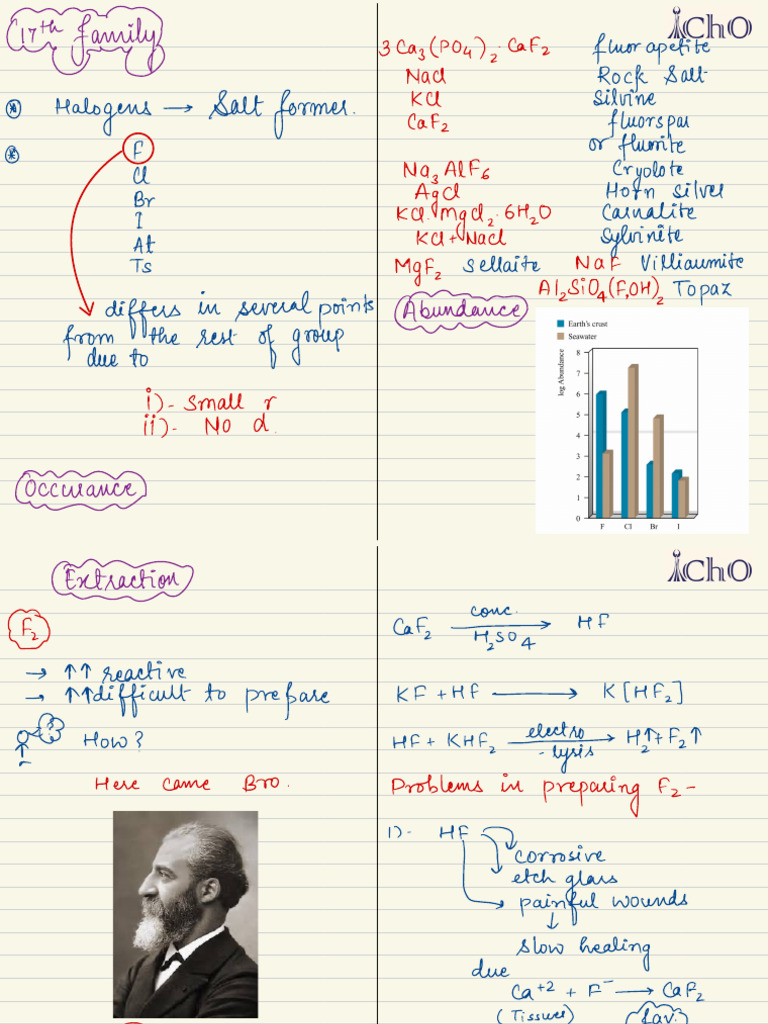 17th family
* Halogens → Salt former.
* F
Cl
Br
I
At
Ts
differs in several points
from the rest of group
due to
i)- Small r
ii)- No d.
Occurance
ichO
3Ca3(PO4)2·CaF2 fluorapetite
Nacl Rock Salt
KCl Silvine
CaF2 fluorspar
or flurite
Na3AlF6 Cryolote
AgCl Horn silver
KCl·Mgcl2·6H2O Carnalite
KCl+Nacl Sylvinite
MgF2 Sellaite NaF Villiaumite
Al2SiO4(F,OH)2 Topaz
Abundance
Earth's crust
Seawater
log Abundance
8
7
6
5
4
3
2
1
0
F Cl Br I
Extraction
F2
→ ↑↑ reactive
→ ↑↑difficult to prepare
How?
Here came Bro.
ichO
CaF2 conc. H2SO4 → HF
KF + HF → K[HF2]
HF + KHF2 electro-lysis → H2↑ + F2↑
Problems in preparing F2 -
1)- HF
corrosive
etch glass
painful wounds
↓
slow healing
due
Ca+2 + F- → CaF2
(Tissues) fav.